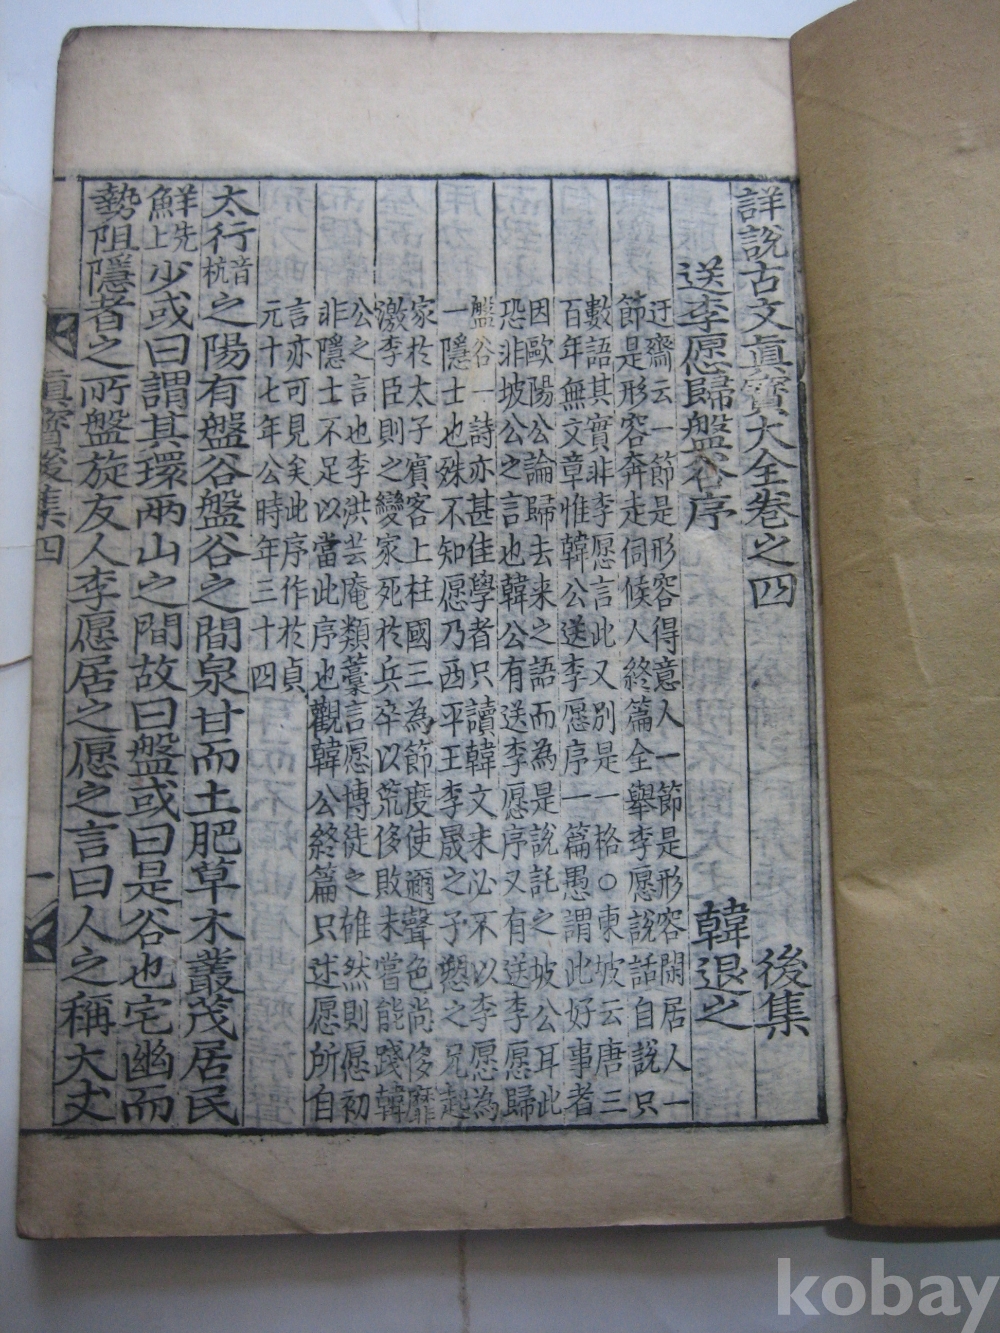 詳說古文眞寶大全卷之四
後集
送李愿歸盤谷序
韓退之
迂齋云一節是形容得意人一節是形容閑居人一
節是形容奔走伺候人終篇全舉李愿說話自說只
數語其實非李愿言此又別是一格○東坡云唐三
百年無文章惟韓公送李愿序一篇愚謂此好事者
因歐陽公論歸去来之語而為是說託之坡公耳此
恐非坡公之言也韓公有送李愿序又有送李愿歸
盤谷一詩亦甚佳學者只讀韓文未必不以李愿為
一隱士也殊不知愿乃西平王李晟之子愬之兄起
家於太子賓客上柱國三為節度使邇聲色尚侈靡
激李臣則之變家死於兵卒以荒侈敗未嘗能踐韓
公之言也李洪芸庵類藁言愿博徒之雄然則愿初
非隱士不足以當此序也觀韓公終篇只述愿所自
言亦可見矣此序作於貞
元十七年公時年三十四
太行音杭之陽有盤谷盤谷之間泉甘而土肥草木叢茂居民
鮮先上少或曰謂其環兩山之間故曰盤或曰是谷也宅幽而
勢阻隱者之所盤旋友人李愿居之愿之言曰人之稱大丈
眞寶後集四
一
kobay